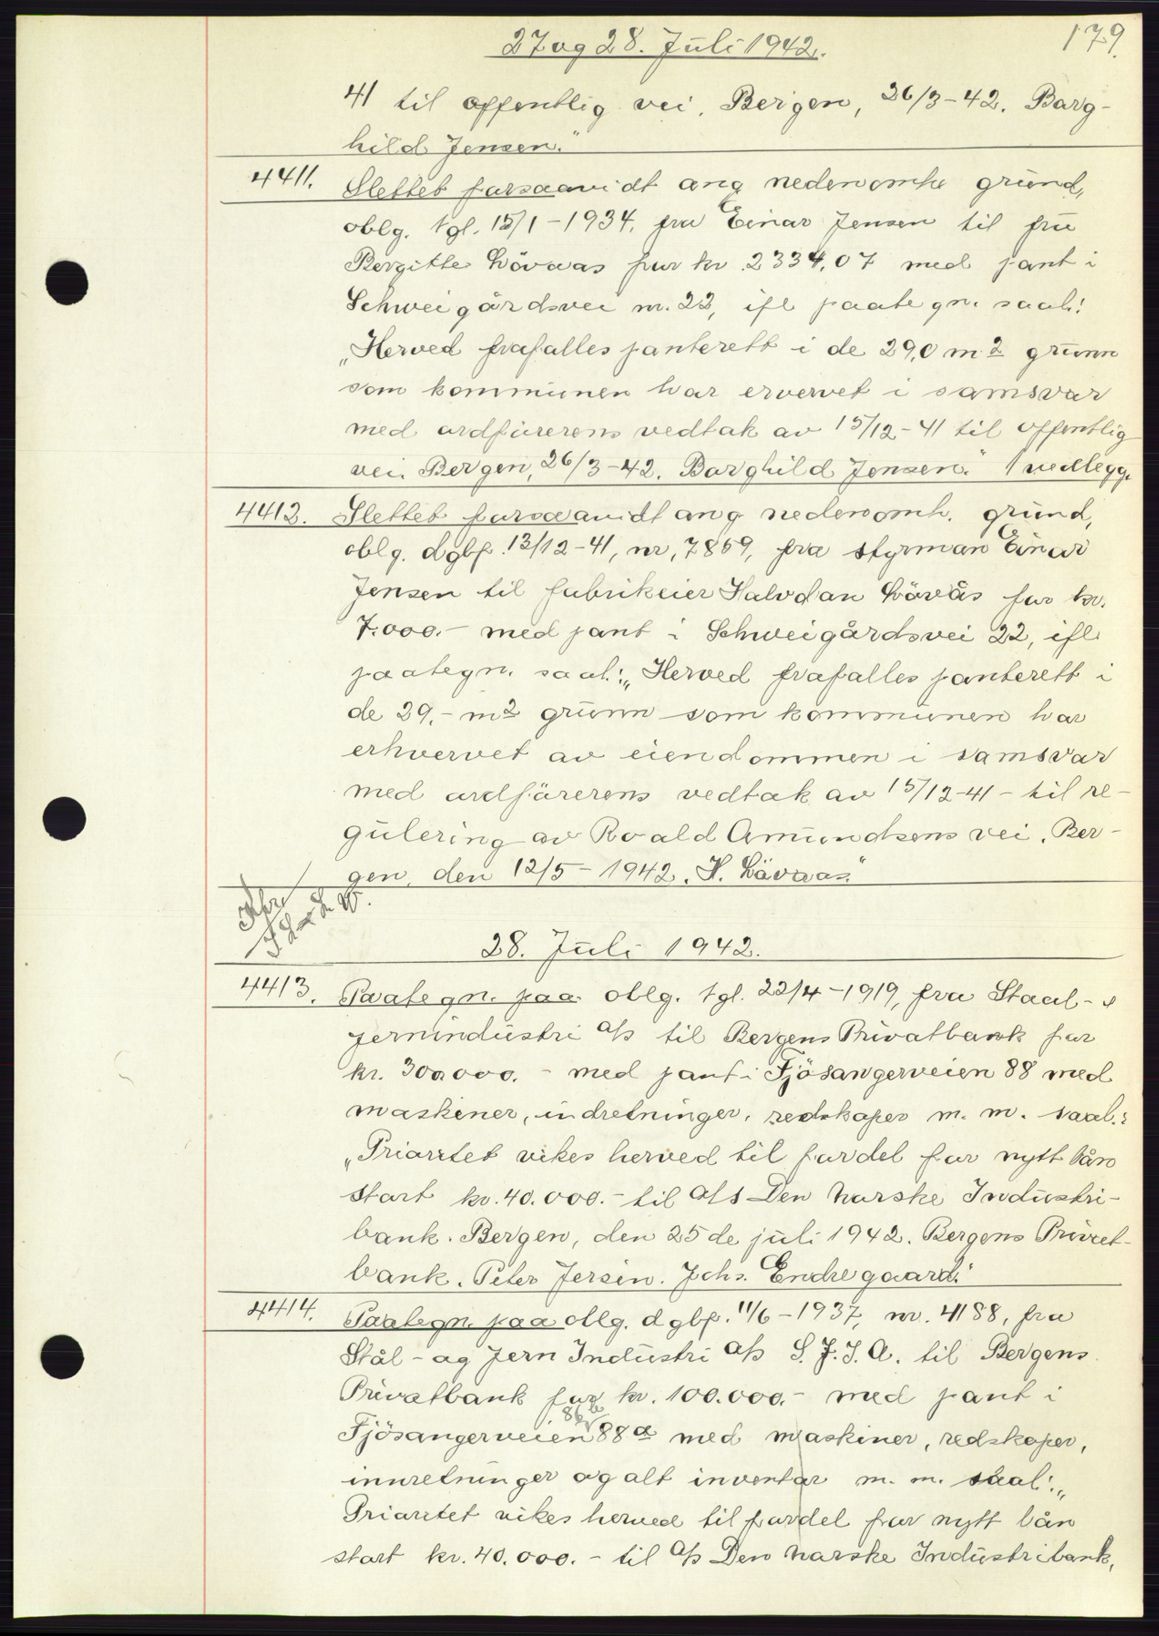 27 og 28. Juli 1942.
179
41 til offentlig vei. Bergen, 26/3-42. Borg-
hild Jensen."
4411. Slettet forsaavidt ang nedenomh. grund,
oblg. tgl. 15/1-1934, fra Einar Jensen til fru
Bergitte Lövaas for kr. 2334,07 med pant i
Schweigårdsvei nr. 22, ifl paategn. saal:
"Herved frafalles panterett i de 29,0 m2 grunn
som kommunen har ervervet i samsvar
med ordförerens vedtak av 15/12-41 til offentlig
vei. Bergen, 26/3-42. Borghild Jensen." 1 vedlegg.
4412. Slettet forsaavidt ang nedenomh. grund,
oblg. dgbf. 13/12-41, nr. 7869, fra styrman Einar
Jensen til fabrikeier Halvdan Lövås for kr.
7.000.- med pant i Schweigårdsvei 22, ifl
paategn. saal: "Herved frafalles panterett i
de 29.- m2 grunn som kommunen har
erhvervet av eiendommen i samsvar
med ordförerens vedtak av 15/12-41 - til re-
gulering av Roald Amundsens vei. Ber-
gen, den 12/5-1942. H. Lövaas."
28. Juli 1942.
4413. Paategn. paa oblg. tgl. 22/4-1919, fra Staal- &
jernindustri A/S til Bergens Privatbank for
kr. 300.000.- med pant i Fjösangerveien 88 med
maskiner, indretninger, redskaper m. m. saal.:
"Prioritet vikes herved til fordel for nytt lån
stort kr. 40.000.- til A/S Den Norske Industri-
bank. Bergen, den 25de juli 1942. Bergens Privat-
bank. Peter Jersin. Johs. Endregaard."
4414. Paategn. paa oblg. dgbf. 11/6-1937, nr. 4188, fra
Stål- og Jern Industri A/S S. J. I. A. til Bergens
Privatbank for kr. 100.000.- med pant i
86b
Fjösangerveien 88a med maskiner, redskaper,
innretninger og alt inventar m. m. saal:"
Prioritet vikes herved til fordel for nytt lån
stort kr. 40.000.- til A/S Den Norske Industribank,